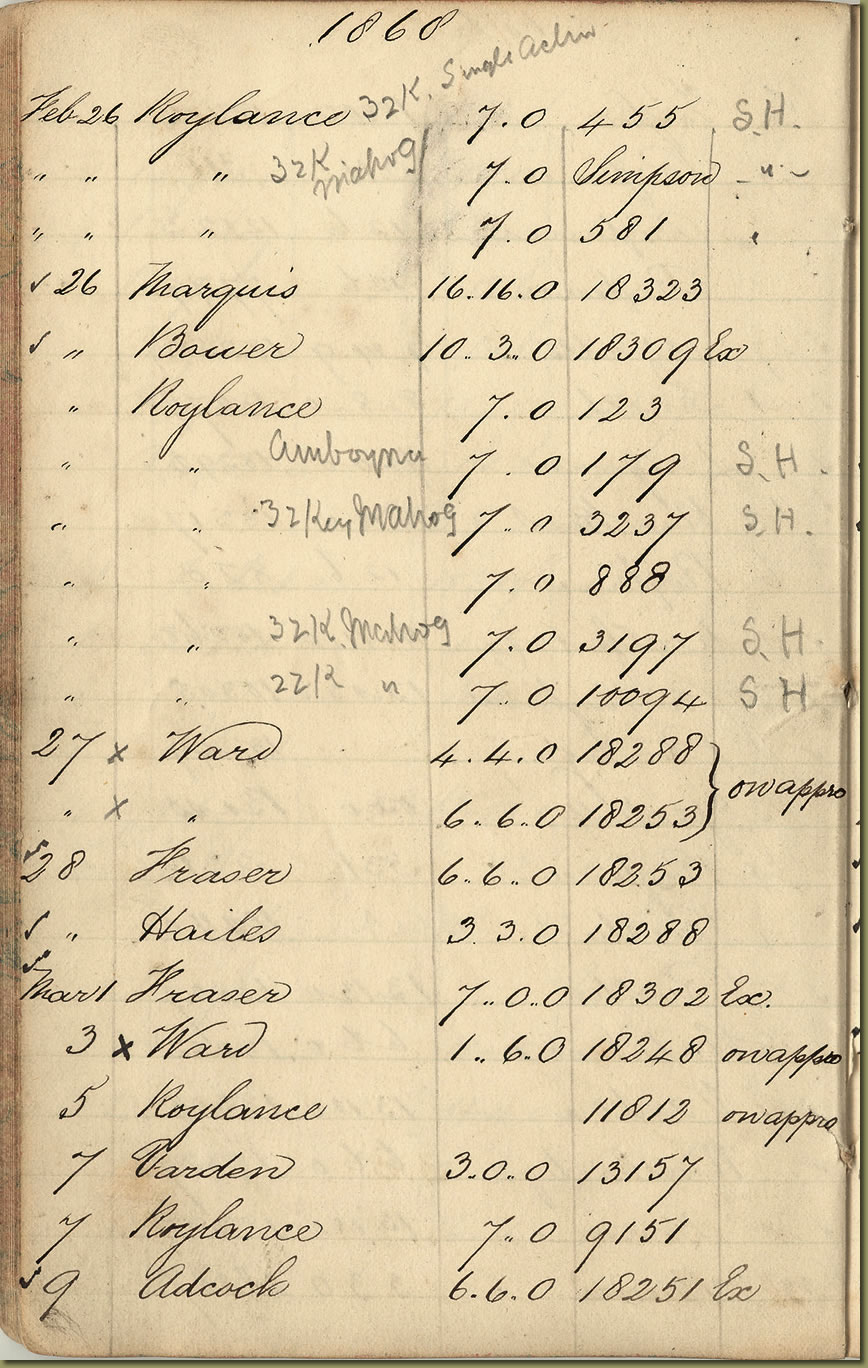 1868
Feb 26 Roylance 32K. Single Action 7.0 455 S.H.
" " " 32K Mahog 7.0 Simpson "
" " " 7.0 581 "
✓ 26 Marquis 16.16.0 18323
✓ " Bower 10.3.0 18309 Ex
" Roylance 7.0 123
" " Amboyna 7.0 179 S.H.
" " 32 Key Mahog 7.0 3237 S.H.
" " 7.0 888
" " 32K. Mahog 7.0 3197 S.H.
" " 22K " 7.0 10094 S H
27 x Ward 4.4.0 18288 } on appro
" x " 6.6.0 18253
✓ 28 Fraser 6.6.0 18253
✓ " Hailes 3.3.0 18288
✓ Mar 1 Fraser 7.0.0 18302 Ex.
3 x Ward 1.6.0 18248 on appro
5 Roylance 11812 on appro
7 Varden 3.0.0 13157
7 Roylance 7.0 9151
✓ 9 Adcock 6.6.0 18251 Ex